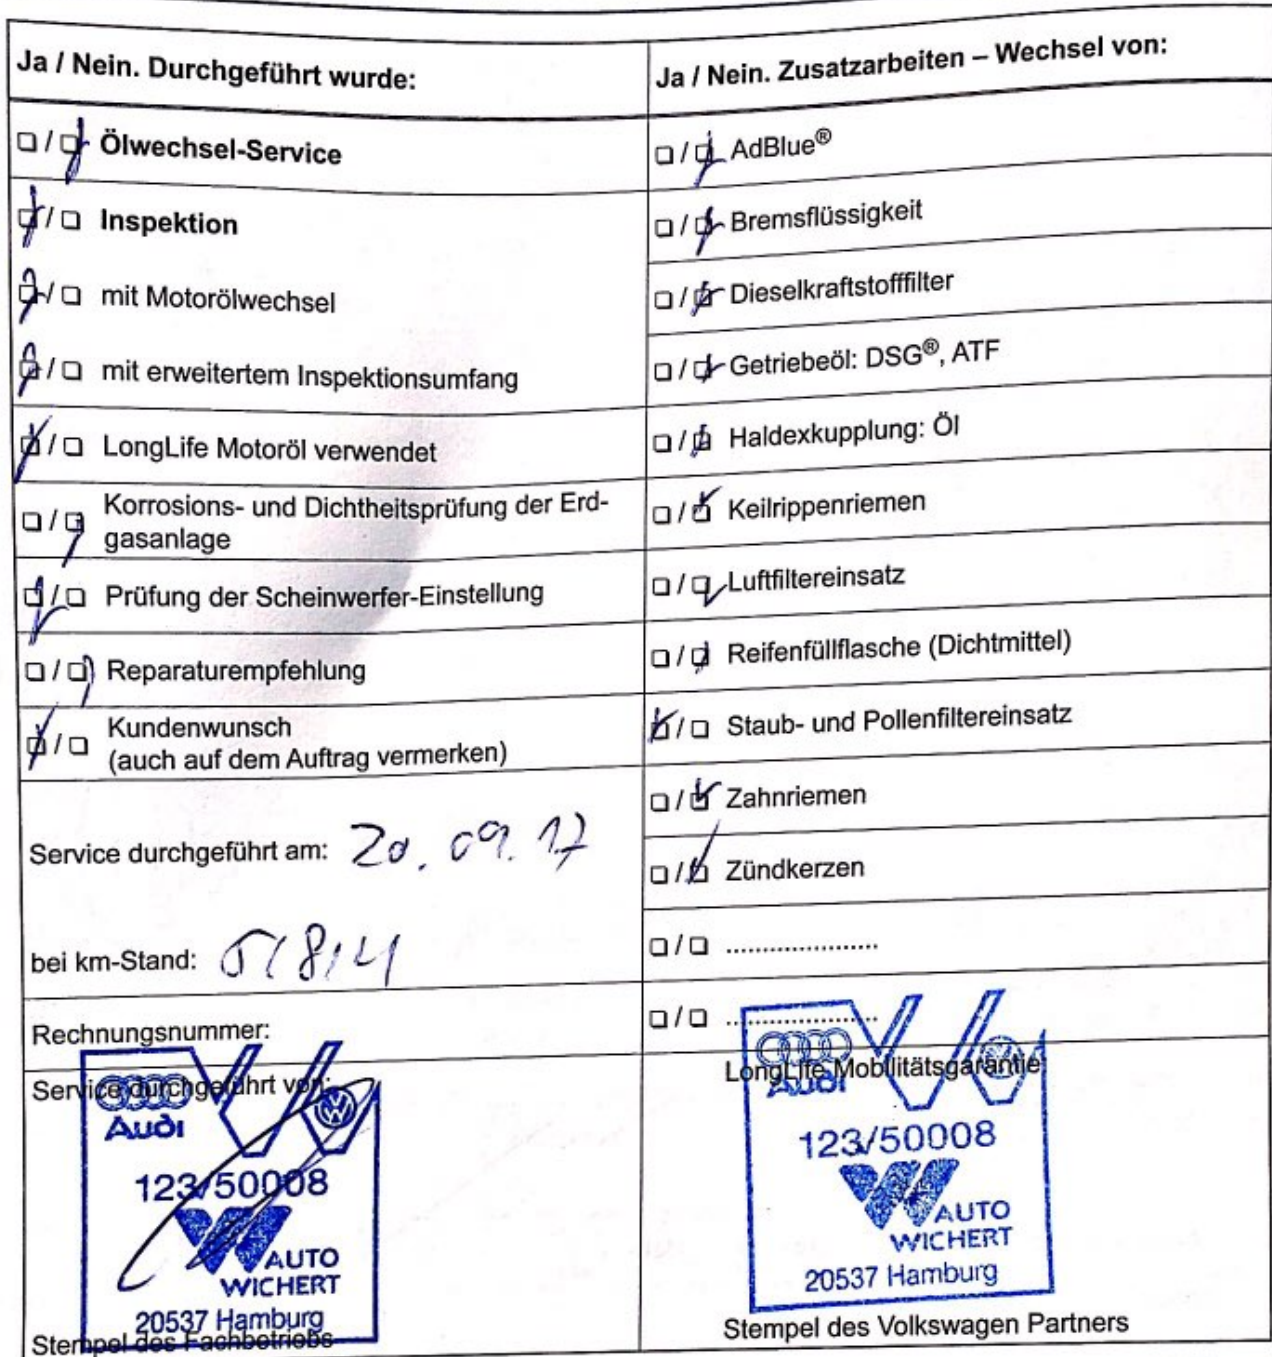 Ja / Nein. Durchgeführt wurde:
☐ / ☑ Ölwechsel-Service
☑ / ☐ Inspektion
☑ / ☐ mit Motorölwechsel
☑ / ☐ mit erweitertem Inspektionsumfang
☑ / ☐ LongLife Motoröl verwendet
☐ / ☑ Korrosions- und Dichtheitsprüfung der Erd-
gasanlage
☑ / ☐ Prüfung der Scheinwerfer-Einstellung
☐ / ☑ Reparaturempfehlung
☑ / ☐ Kundenwunsch
(auch auf dem Auftrag vermerken)
Service durchgeführt am: 20.09.17
bei km-Stand:
Rechnungsnummer:
Service durchgeführt von:
Audi
123/50008
AUTO
WICHERT
20537 Hamburg
Stempel des Fachbetriebs
Ja / Nein. Zusatzarbeiten – Wechsel von:
☐ / ☑ AdBlue®
☐ / ☑ Bremsflüssigkeit
☐ / ☑ Dieselkraftstofffilter
☐ / ☑ Getriebeöl: DSG®, ATF
☐ / ☑ Haldexkupplung: Öl
☐ / ☑ Keilrippenriemen
☐ / ☑ Luftfiltereinsatz
☐ / ☑ Reifenfüllflasche (Dichtmittel)
☑ / ☐ Staub- und Pollenfiltereinsatz
☐ / ☑ Zahnriemen
☐ / ☑ Zündkerzen
☐ / ☐ .....................
☐ / ☐ .....................
LongLife Mobilitätsgarantie
Audi
123/50008
AUTO
WICHERT
20537 Hamburg
Stempel des Volkswagen Partners